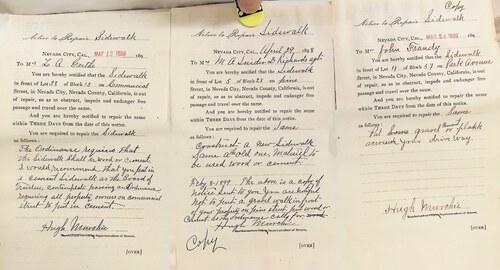 Notice to Repair Sidewalk
NEVADA CITY, CAL., MAY 13 1898 189
To Mr L A
You are hereby notified that the Sidewalk
in front of Lot 28 of Block 15 on Commercial
Street, in Nevada City, Nevada County, California, is out
of repair, so as to obstruct, impede and endanger free
passage and travel over the same.
And you are hereby notified to repair the same
within THREE DAYS from the date of this notice.
You are required to repair the Sidewalk
as follows:
The Ordinance requires that
the Sidewalk shall be wood or cement.
I would recommend that you put in
a cement Sidewalk as the Board of
Trustees contemplate passing an Ordinance
requiring all property owners on commercial
street to put in cement
Hugh Murchie
Superintendent of Streets.
[OVER]
Notice to Repair Sidewalk
NEVADA CITY, CAL., April 29, 1898
To M
You are hereby notified that the Sidewalk
in front of Lot 5 of Block 35 on Pine
Street, in Nevada City, Nevada County, California, is out
of repair, so as to obstruct, impede and endanger free
passage and travel over the same.
And you are hereby notified to repair the same
within THREE DAYS from the date of this notice.
You are required to repair the Same
as follows:
Construct a New Sidewalk
Same as old one Material to
be used wood or cement
Feby 8-1899 The above is a copy of
notice sent to you You are
Not to put a gravel walk in front
of your property on pine street put wood or
Cement as the Ordinance calls for
Hugh Murchie
Copy
[OVER]
Copy
Notice to Repair Sidewalk
NEVADA CITY, CAL., 189
To Mr John
You are hereby notified that the Sidewalk
in front of Lot 11 of Block 57 on Park Avenue
Street, in Nevada City, Nevada County, California, is out
of repair, so as to obstruct, impede and endanger free
passage and travel over the same.
And you are hereby notified to repair the same
within THREE DAYS from the date of this notice.
You are required to repair the Same
as follows:
Put some gravel or plank
across your drive way.
Hugh Murchie
Superintendent of Streets.
[OVER]